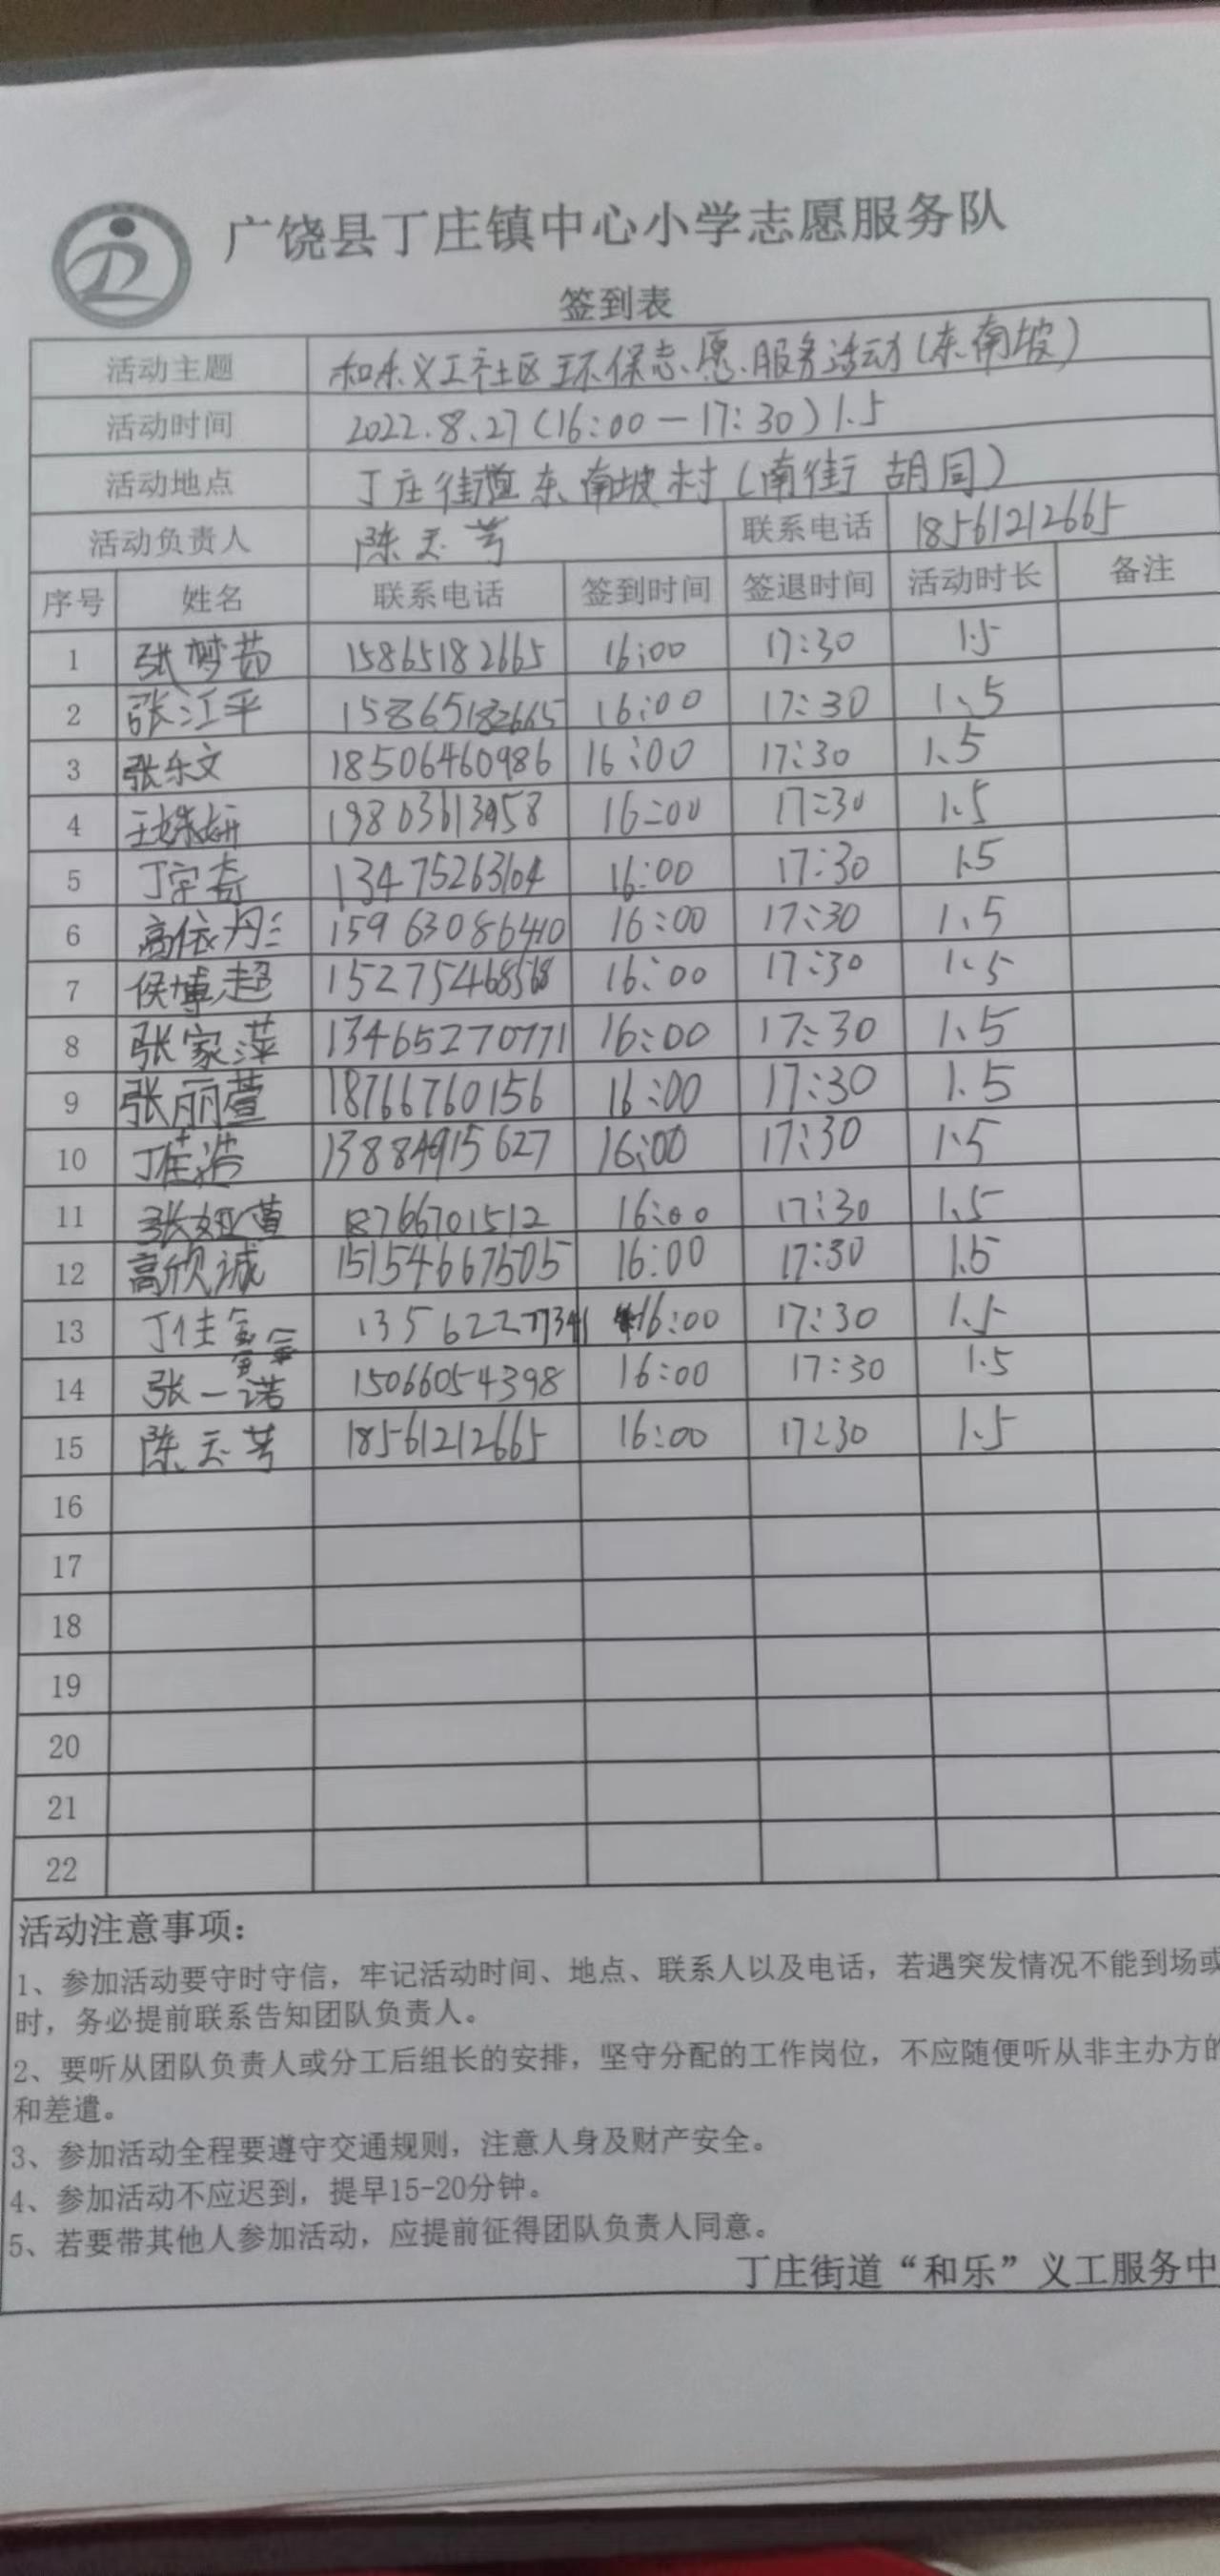 广饶县丁庄镇中心小学志愿服务队
签到表
活动主题 和乐义工社区环保志愿服务活动(东南坡)
活动时间 2022.8.27(16:00-17:30)1.5
活动地点 丁庄街道东南坡村(南街胡同)
活动负责人 陈玉芳 联系电话 18561212665
序号 姓名 联系电话 签到时间 签退时间 活动时长 备注
1 张梦茹 15865182665 16:00 17:30 1.5
2 张江平 15865182665 16:00 17:30 1.5
3 张乐文 18506460986 16:00 17:30 1.5
4 王姝妍 16:00 17:30 1.5
5 丁宇奇 13475263104 16:00 17:30 1.5
6 高依丹 15963086410 16:00 17:30 1.5
7 侯博超 16:00 17:30 1.5
8 张家萍 13465270771 16:00 17:30 1.5
9 张丽萱 18766760156 16:00 17:30 1.5
10 16:00 17:30 1.5
11 18766701512 16:00 17:30 1.5
12 高欣诚 15154667505 16:00 17:30 1.5
13 丁佳 16:00 17:30 1.5
14 张一诺 15066054398 16:00 17:30 1.5
15 陈玉芳 18561212665 16:00 17:30 1.5
16
17
18
19
20
21
22
活动注意事项:
1、参加活动要守时守信，牢记活动时间、地点、联系人以及电话，若遇突发情况不能到场或
时，务必提前联系告知团队负责人。
2、要听从团队负责人或分工后组长的安排，坚守分配的工作岗位，不应随便听从非主办方的
和差遣。
3、参加活动全程要遵守交通规则，注意人身及财产安全。
4、参加活动不应迟到，提早15-20分钟。
5、若要带其他人参加活动，应提前征得团队负责人同意。
丁庄街道“和乐”义工服务中